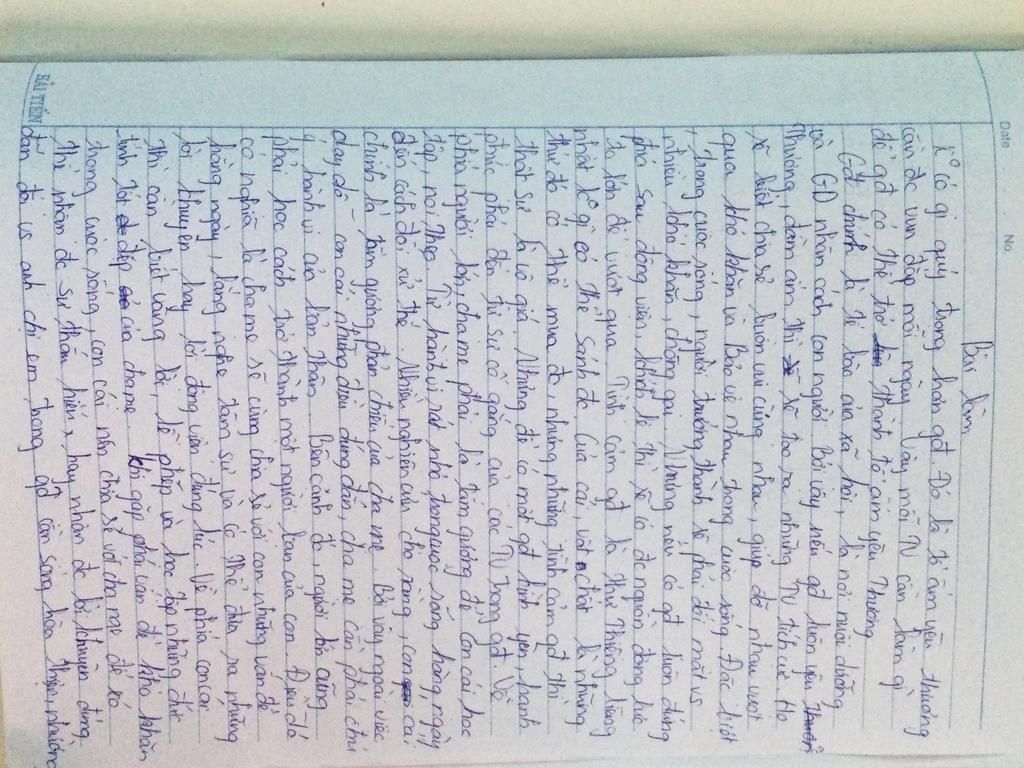 Date No
Bài làm
K° có gì quý trọng hơn gđ. Đó là tổ ấm yêu thương
cần đc vun đắp mỗi ngày. Vậy mỗi TV cần làm gì
để gđ có thể trở thành tổ ấm yêu thương
Gđ chính là tế bào của xã hội, là nơi nuôi dưỡng
và GD nhân cách con người. Bởi vậy nếu gđ luôn yêu
thương, đầm ấm thì sẽ tạo ra những TV tích cực. Họ
sẽ biết chia sẻ buồn vui cùng nhau, giúp đỡ nhau vượt
qua khó khăn và Bảo vệ nhau trong cuộc sống. Đặc biệt
, trong cuộc sống, người trưởng thành sẽ phải đối mặt vs
nhiều khó khăn, chông gai. Nhưng nếu có gđ luôn đứng
phía sau động viên, khích lệ thì sẽ có đc nguồn động lực
to lớn để vượt qua. Tình cảm gđ là thứ thiêng liêng
nhất k° gì có thể sánh đc. Của cải, vật chất là những
thứ đó có thể mua đc, nhưng những tình cảm gđ thì
thật sự là vô giá. Nhưng để có một gđ bình yên, hạnh
phúc phải đến từ sự cố gắng của các TV trong gđ. Về
phía người lớn, cha mẹ phải là tấm gương để con cái học
tập, noi theo. Từ hành vi rất nhỏ trong cuộc sống hàng ngày
đến cách đối xử thế. Nhiều nghiên cứu cho rằng, con cái
chính là tấm gương phản chiếu của cha mẹ. Bởi vậy ngoài việc
dạy dỗ con cái những điều đúng đắn, cha mẹ cần phải chú
ý hành vi của bản thân. Bên cạnh đó, người lớn cũng
phải học cách trở thành một người bạn của con. Điều đó
có nghĩa là cha mẹ sẽ cùng chia sẻ với con những vấn đề
hằng ngày, lắng nghe tâm sự và có thể đưa ra những
lời khuyên hay lời động viên đúng lúc. Về phía con cái
thì cần biết vâng lời, lễ phép và học tập những đức
tính tốt đẹp của cha mẹ. Khi gặp phải vấn đề khó khăn
trong cuộc sống, con cái nên chia sẻ với cha mẹ để từ đó
thì nhận đc sự thấu hiểu, hay nhận đc lời khuyên đúng
đắn. Đối vs anh chị em trong gđ cần sống hòa thuận, nhường
HẢI TIẾN